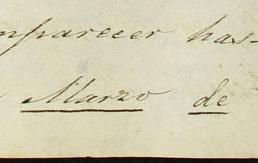 mparecer has-
Marzo de